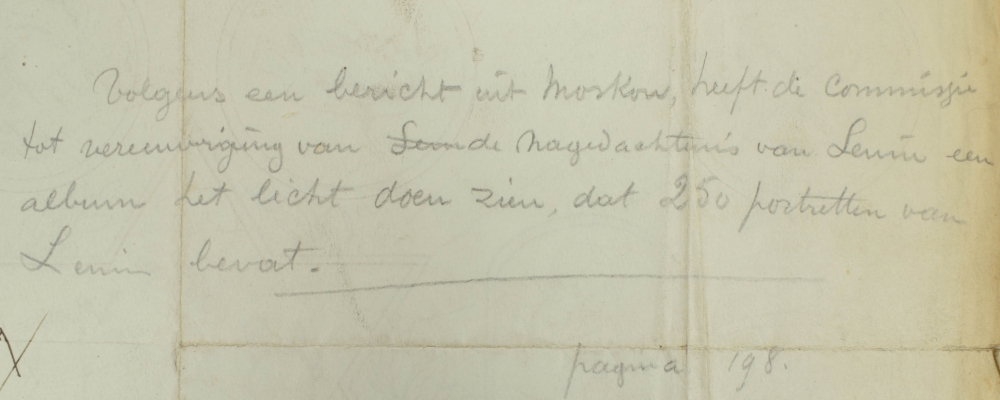 Volgens een bericht uit Moskou, heeft de Commissie
tot vereeuwiging van de nagedachtenis van Lenin een
album het licht doen zien, dat 250 portretten van
Lenin bevat.
pagina 198.